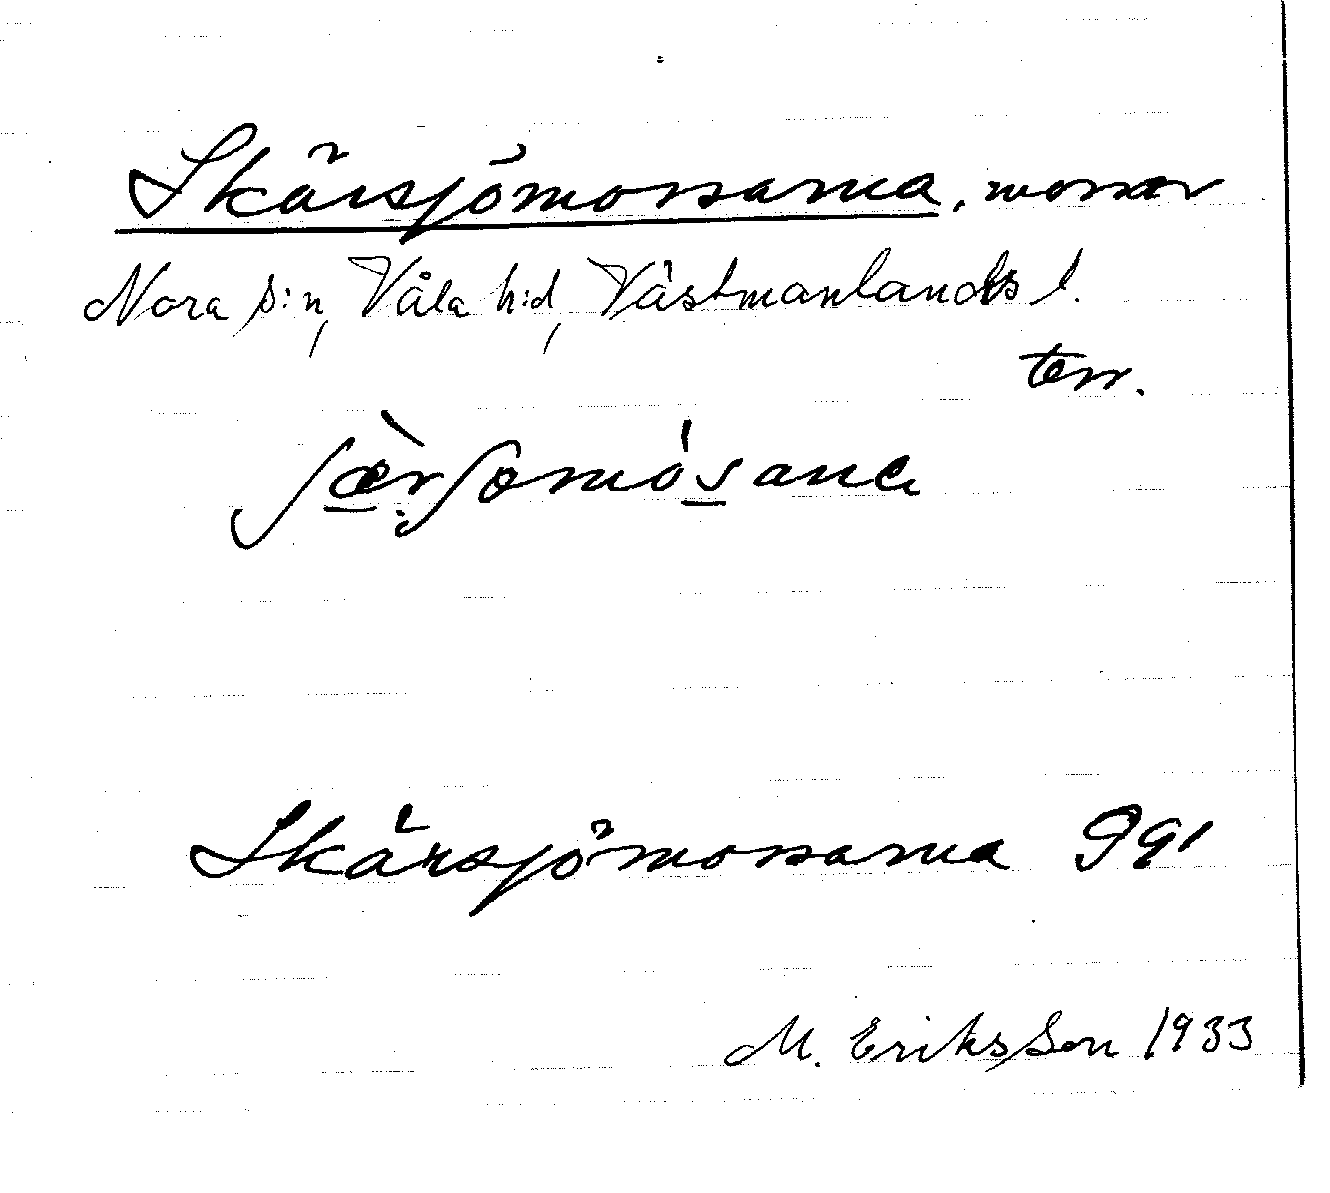 Skärsjömossarna, mossar
Nora s:n, Våla h:d, Västmanlands l.
terr.
Skärsjömossarna 991
M. Eriksson 1933